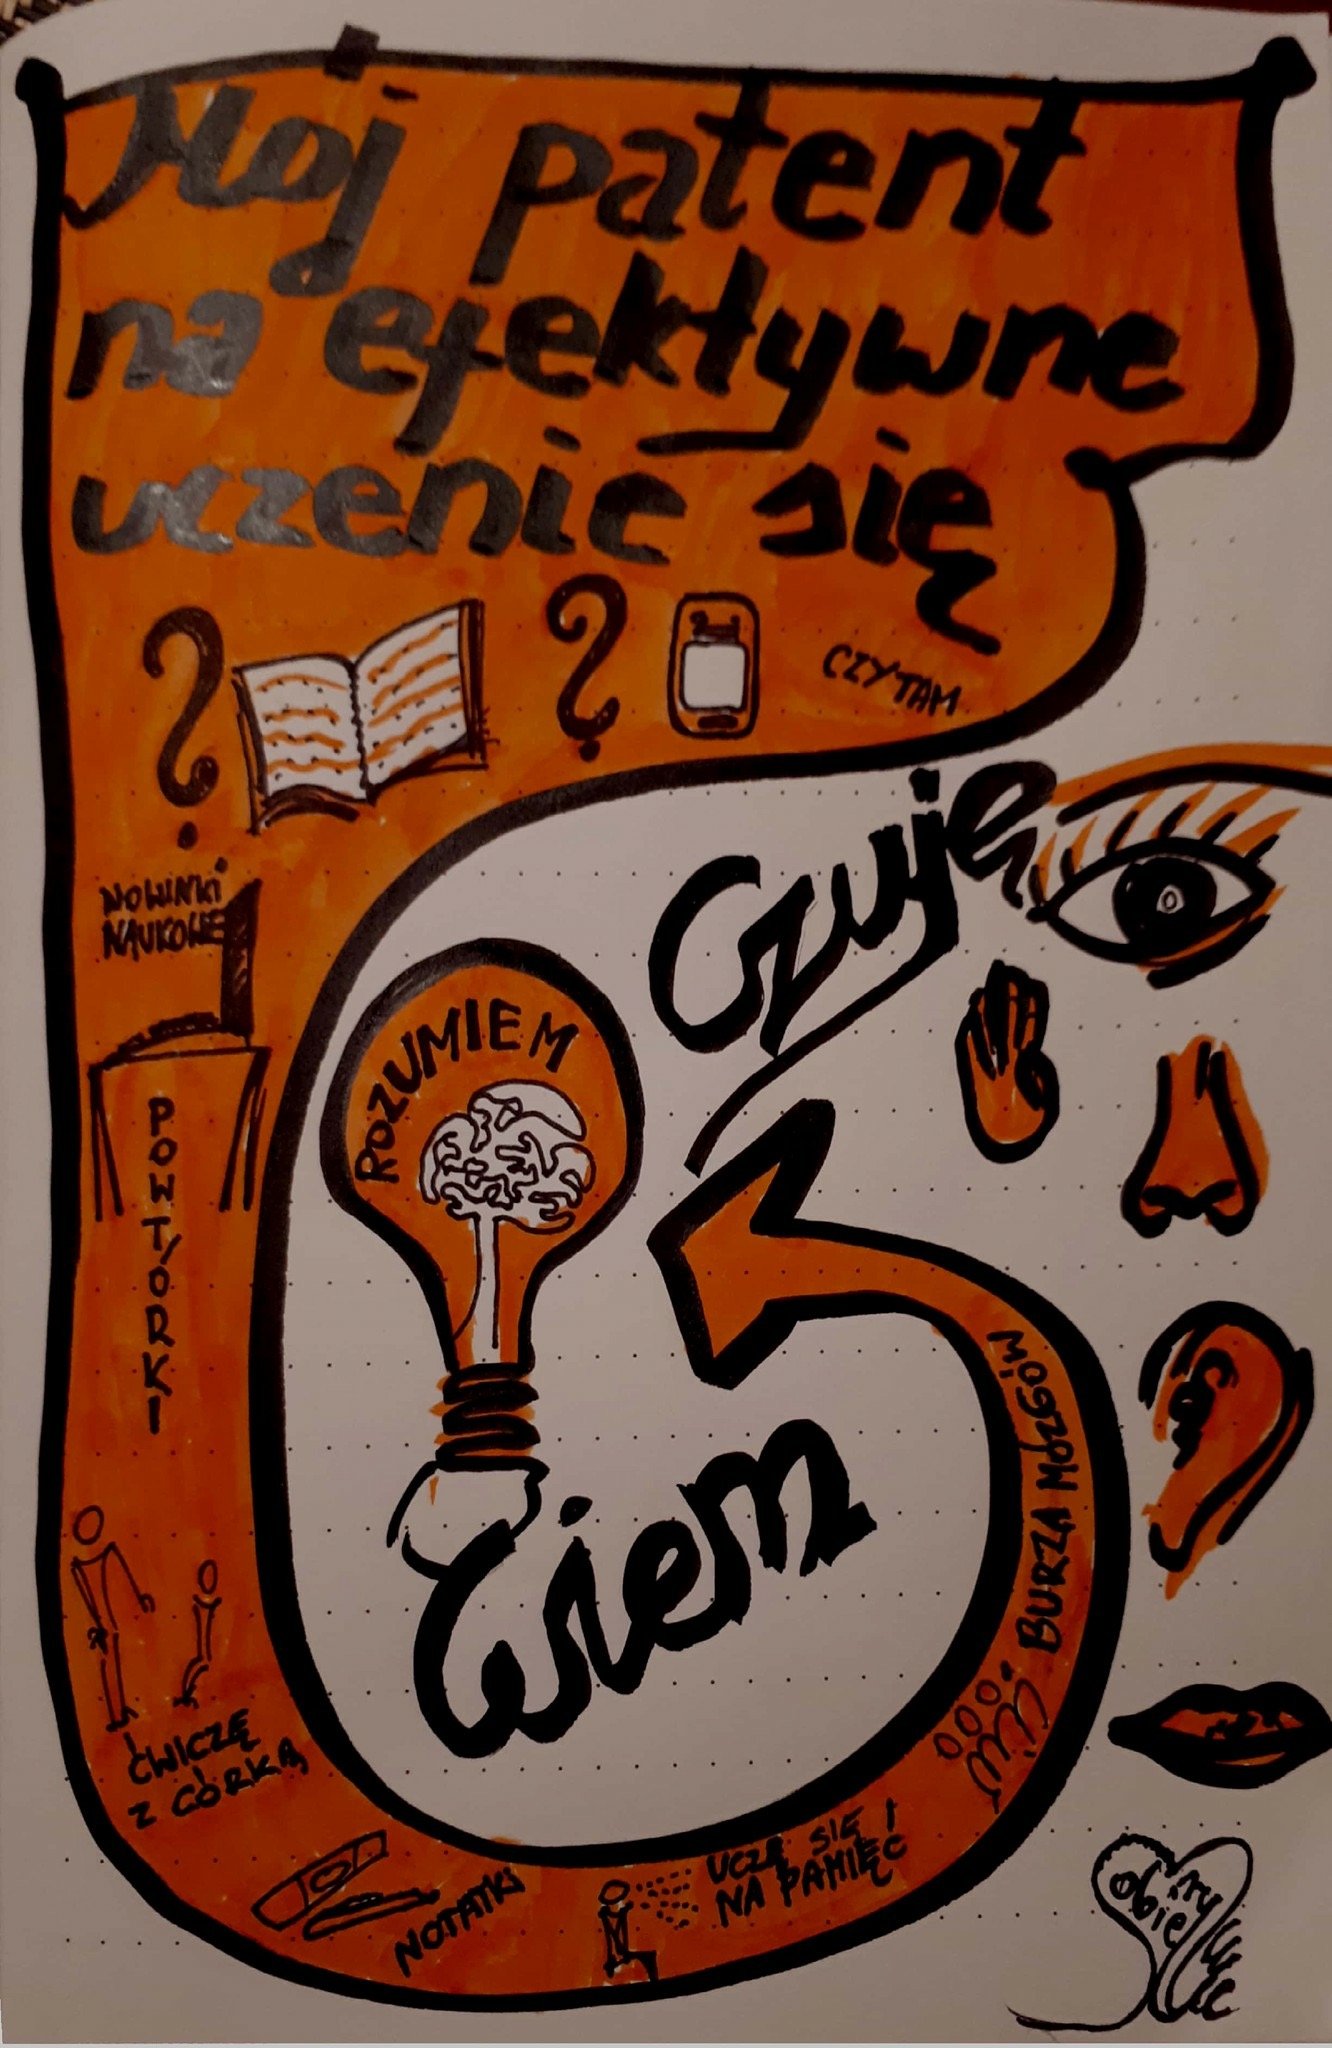 Mój patent
na efektywne
uczenie się
CZYTAM
NOWINKI
NAUKOWE
Czuję
ROZUMIEM
POWTÓRKI
BURZA MÓZGÓW
Wiem
ĆWICZĘ
Z CÓRKĄ
NOTATKI
UCZĘ SIĘ
NA PAMIĘĆ